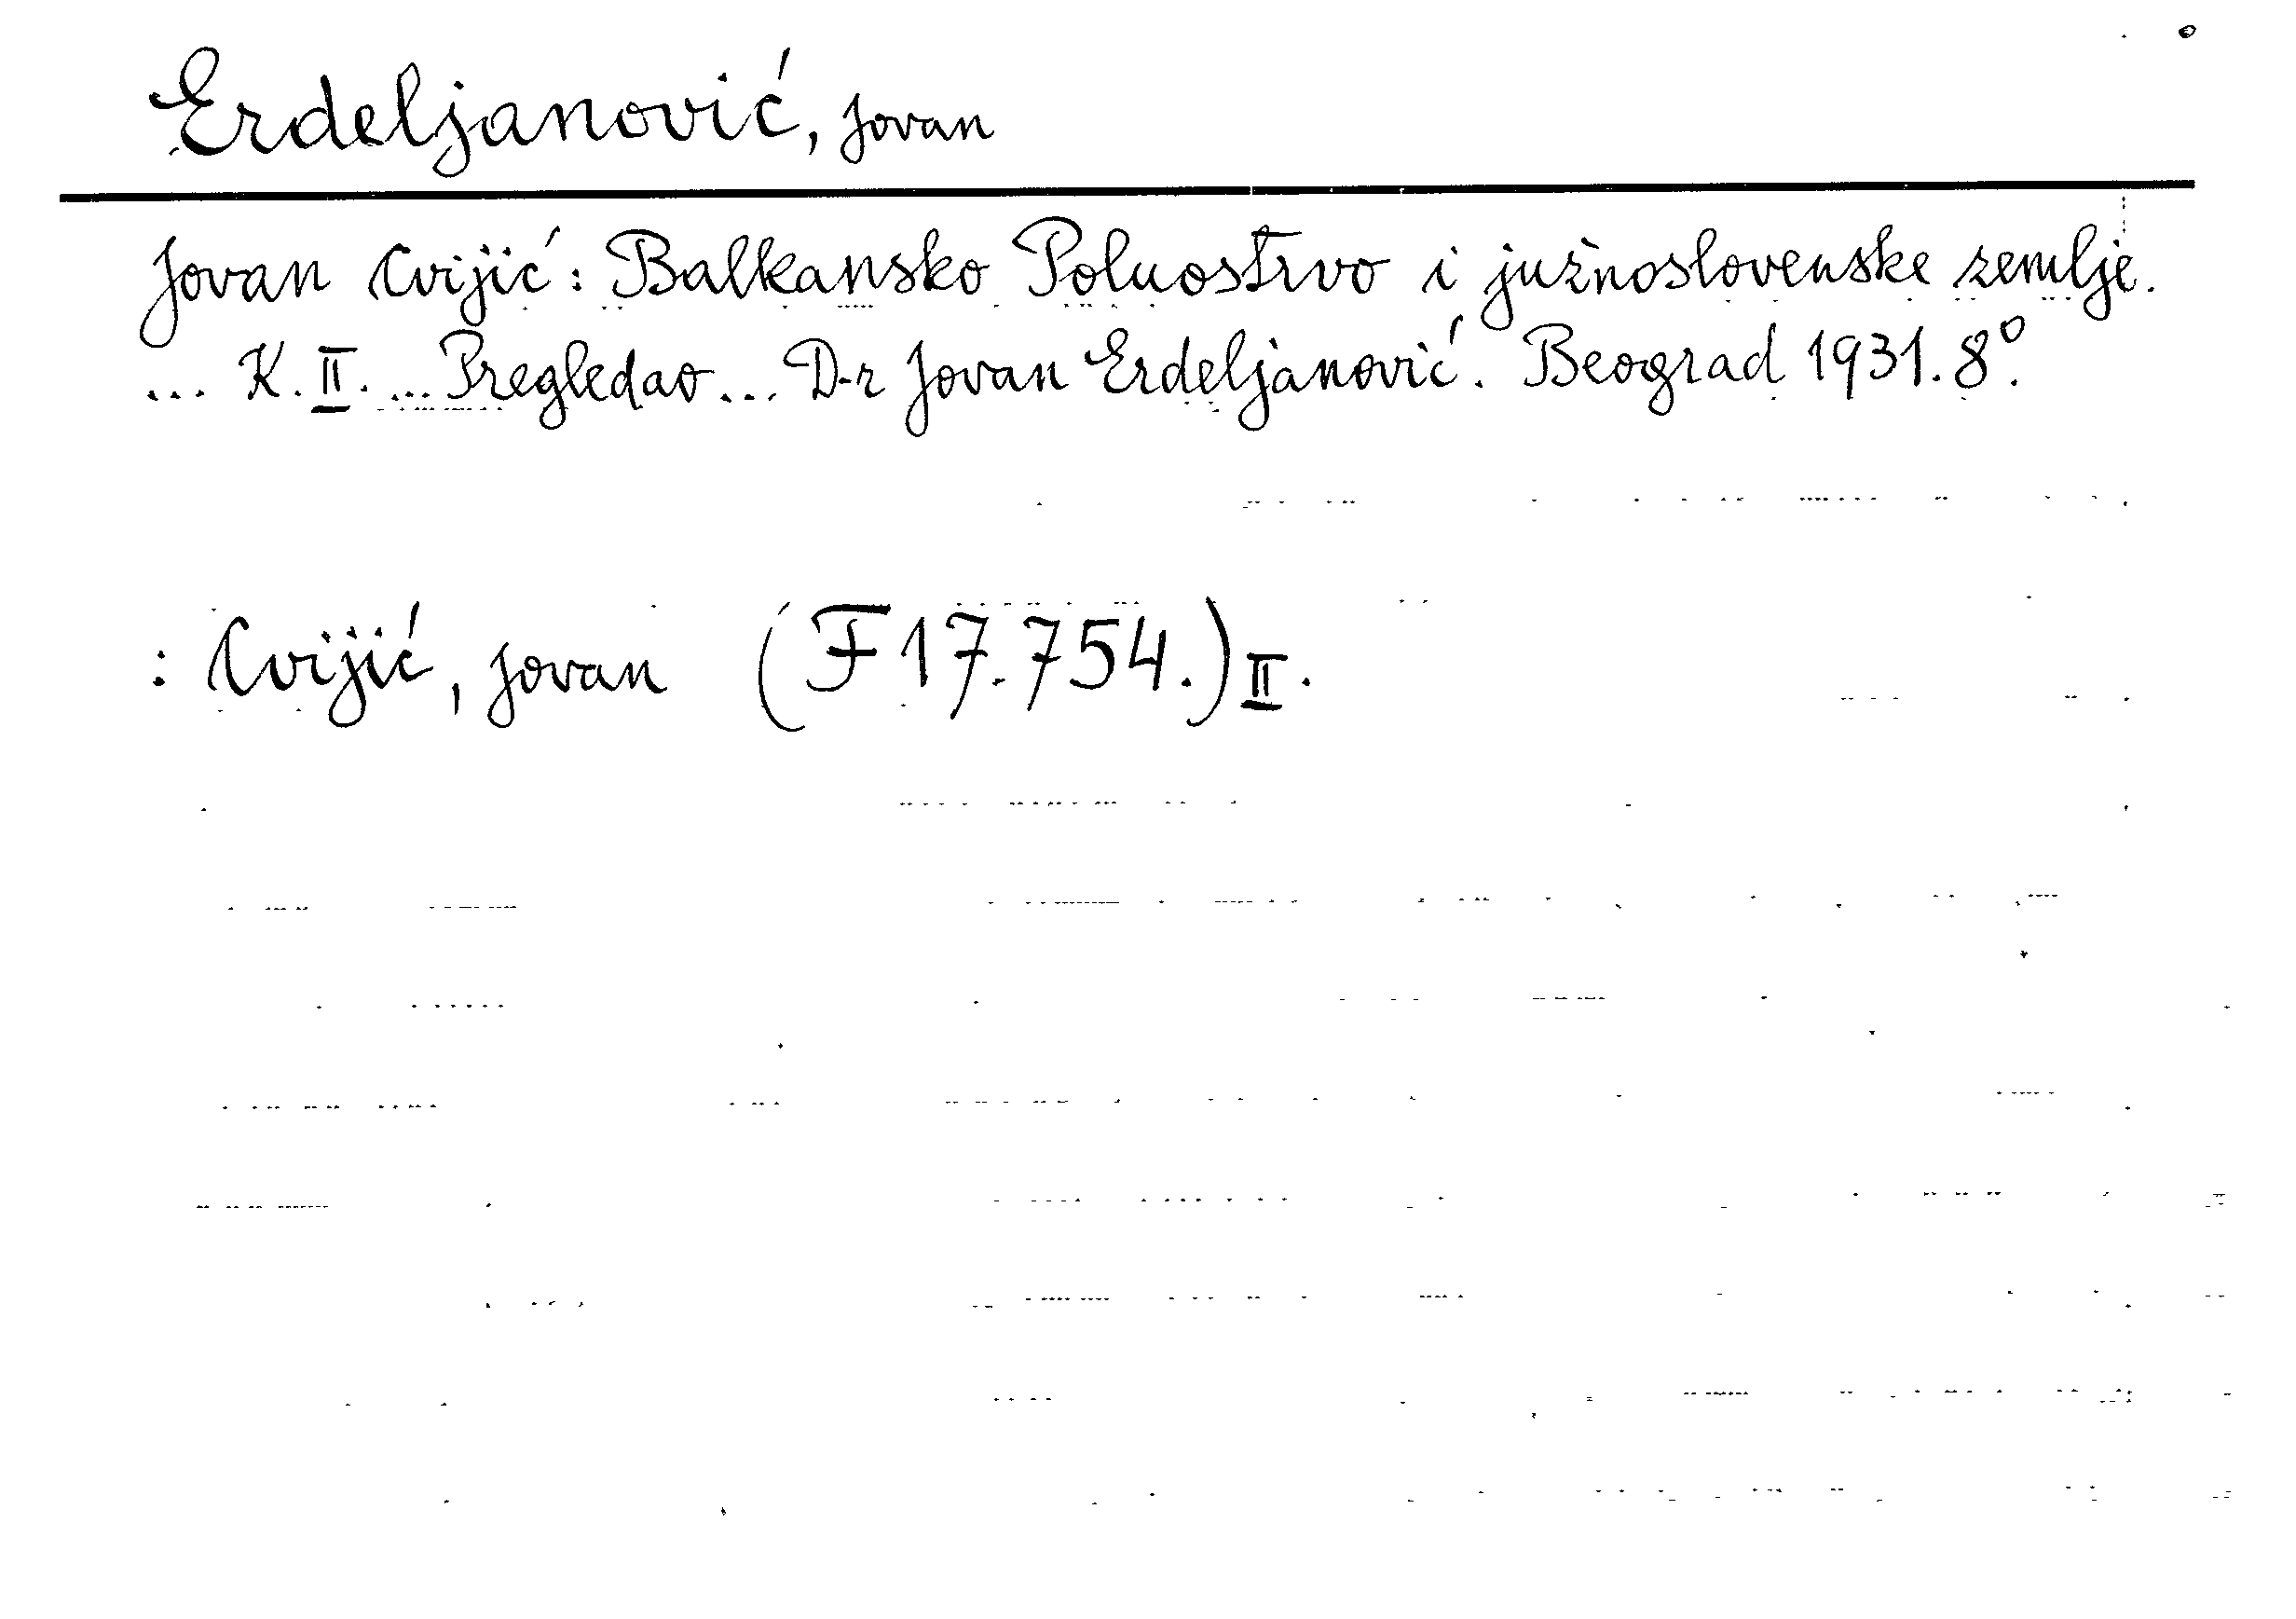 Erdeljanović, Jovan
Jovan Cvijić: Balkansko Poluostrvo i južnoslovenske zemlje.
... K. II. ... Pregledao ... D-r Jovan Erdeljanović. Beograd 1931. 8°.
: Cvijić, Jovan (F 17.754.) II.